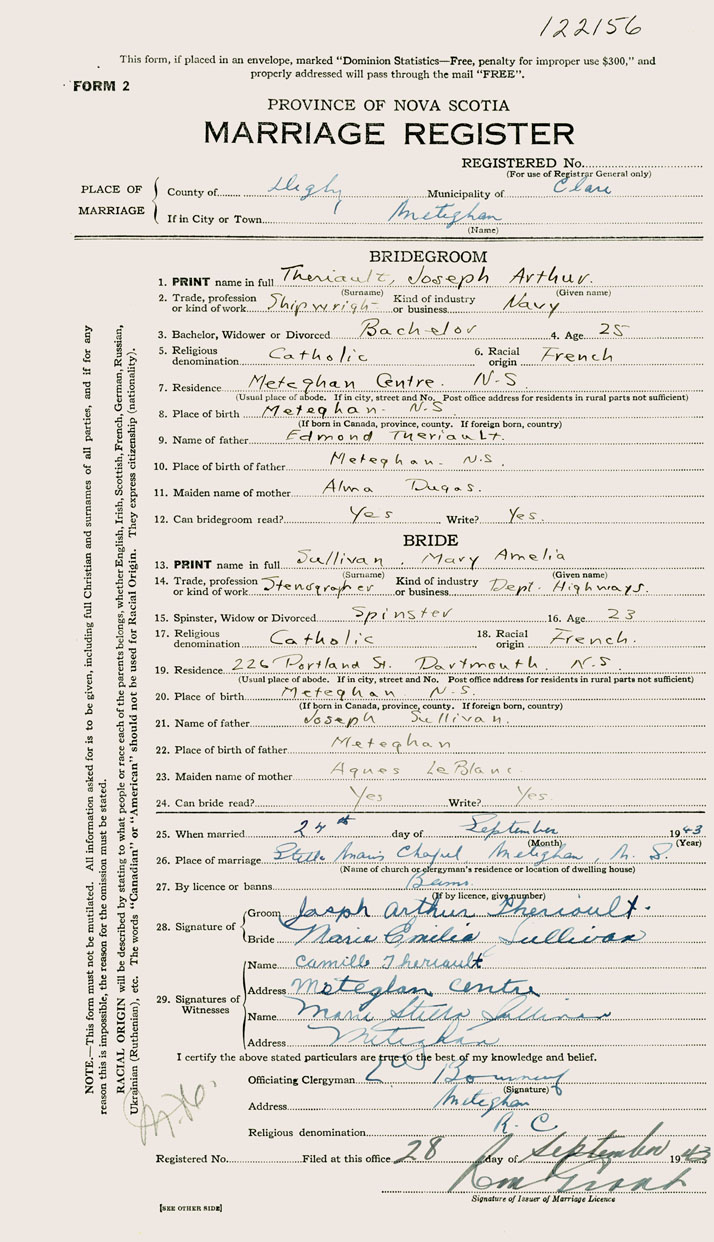 122156
This form, if placed in an envelope, marked "Dominion Statistics—Free, penalty for improper use $300," and
properly addressed will pass through the mail "FREE".
FORM 2
PROVINCE OF NOVA SCOTIA
MARRIAGE REGISTER
REGISTERED No.
(For use of Registrar General only)
PLACE OF MARRIAGE
County of Digby Municipality of Clare
If in City or Town Meteghan
(Name)
BRIDEGROOM
1. PRINT name in full Theriault, Joseph Arthur.
(Surname) (Given name)
2. Trade, profession or kind of work Shipwright Kind of industry or business Navy
3. Bachelor, Widower or Divorced Bachelor 4. Age 25
5. Religious denomination Catholic 6. Racial origin French
7. Residence Meteghan Centre. N-S
(Usual place of abode. If in city, street and No. Post office address for residents in rural parts not sufficient)
8. Place of birth Meteghan- N-S
(If born in Canada, province, county. If foreign born, country)
9. Name of father Edmond Theriault.
10. Place of birth of father Meteghan- N.S.
11. Maiden name of mother Alma Dugas.
12. Can bridegroom read? Yes Write? Yes.
BRIDE
13. PRINT name in full Sullivan, Mary Amelia
(Surname) (Given name)
14. Trade, profession or kind of work Stenographer Kind of industry or business Dept. Highways.
15. Spinster, Widow or Divorced Spinster 16. Age 23
17. Religious denomination Catholic 18. Racial origin French.
19. Residence 226 Portland St. Dartmouth. N.S.
(Usual place of abode. If in city, street and No. Post office address for residents in rural parts not sufficient)
20. Place of birth Meteghan N.S.
(If born in Canada, province, county. If foreign born, country)
21. Name of father Joseph Sullivan.
22. Place of birth of father Meteghan
23. Maiden name of mother Agnes LeBlanc
24. Can bride read? Yes Write? Yes.
25. When married 24th day of September 1943
(Month) (Year)
26. Place of marriage Stella Maris Chapel, Meteghan, N. S.
(Name of church or clergyman's residence or location of dwelling house)
27. By licence or banns Banns
(If by licence, give number)
28. Signature of Groom Joseph Arthur Theriault.
Bride Marie Emilia Sullivan
29. Signatures of Witnesses
Name Camille Theriault
Address Meteghan Centre
Name Marie Stella Sullivan
Address Meteghan
I certify the above stated particulars are true to the best of my knowledge and belief.
Officiating Clergyman
(Signature)
Address Meteghan
Religious denomination R. C
Registered No. Filed at this office 28 day of September 1943
Grant
Signature of Issuer of Marriage Licence
[SEE OTHER SIDE]
NOTE.—This form must not be mutilated. All information asked for is to be given, including full Christian and surnames of all parties, and if for any
reason this is impossible, the reason for the omission must be stated.
RACIAL ORIGIN will be described by stating to what people or race each of the parents belongs, whether English, Irish, Scottish, French, German, Russian,
Ukrainian (Ruthenian), etc. The words "Canadian" or "American" should not be used for Racial Origin. They express citizenship (nationality).